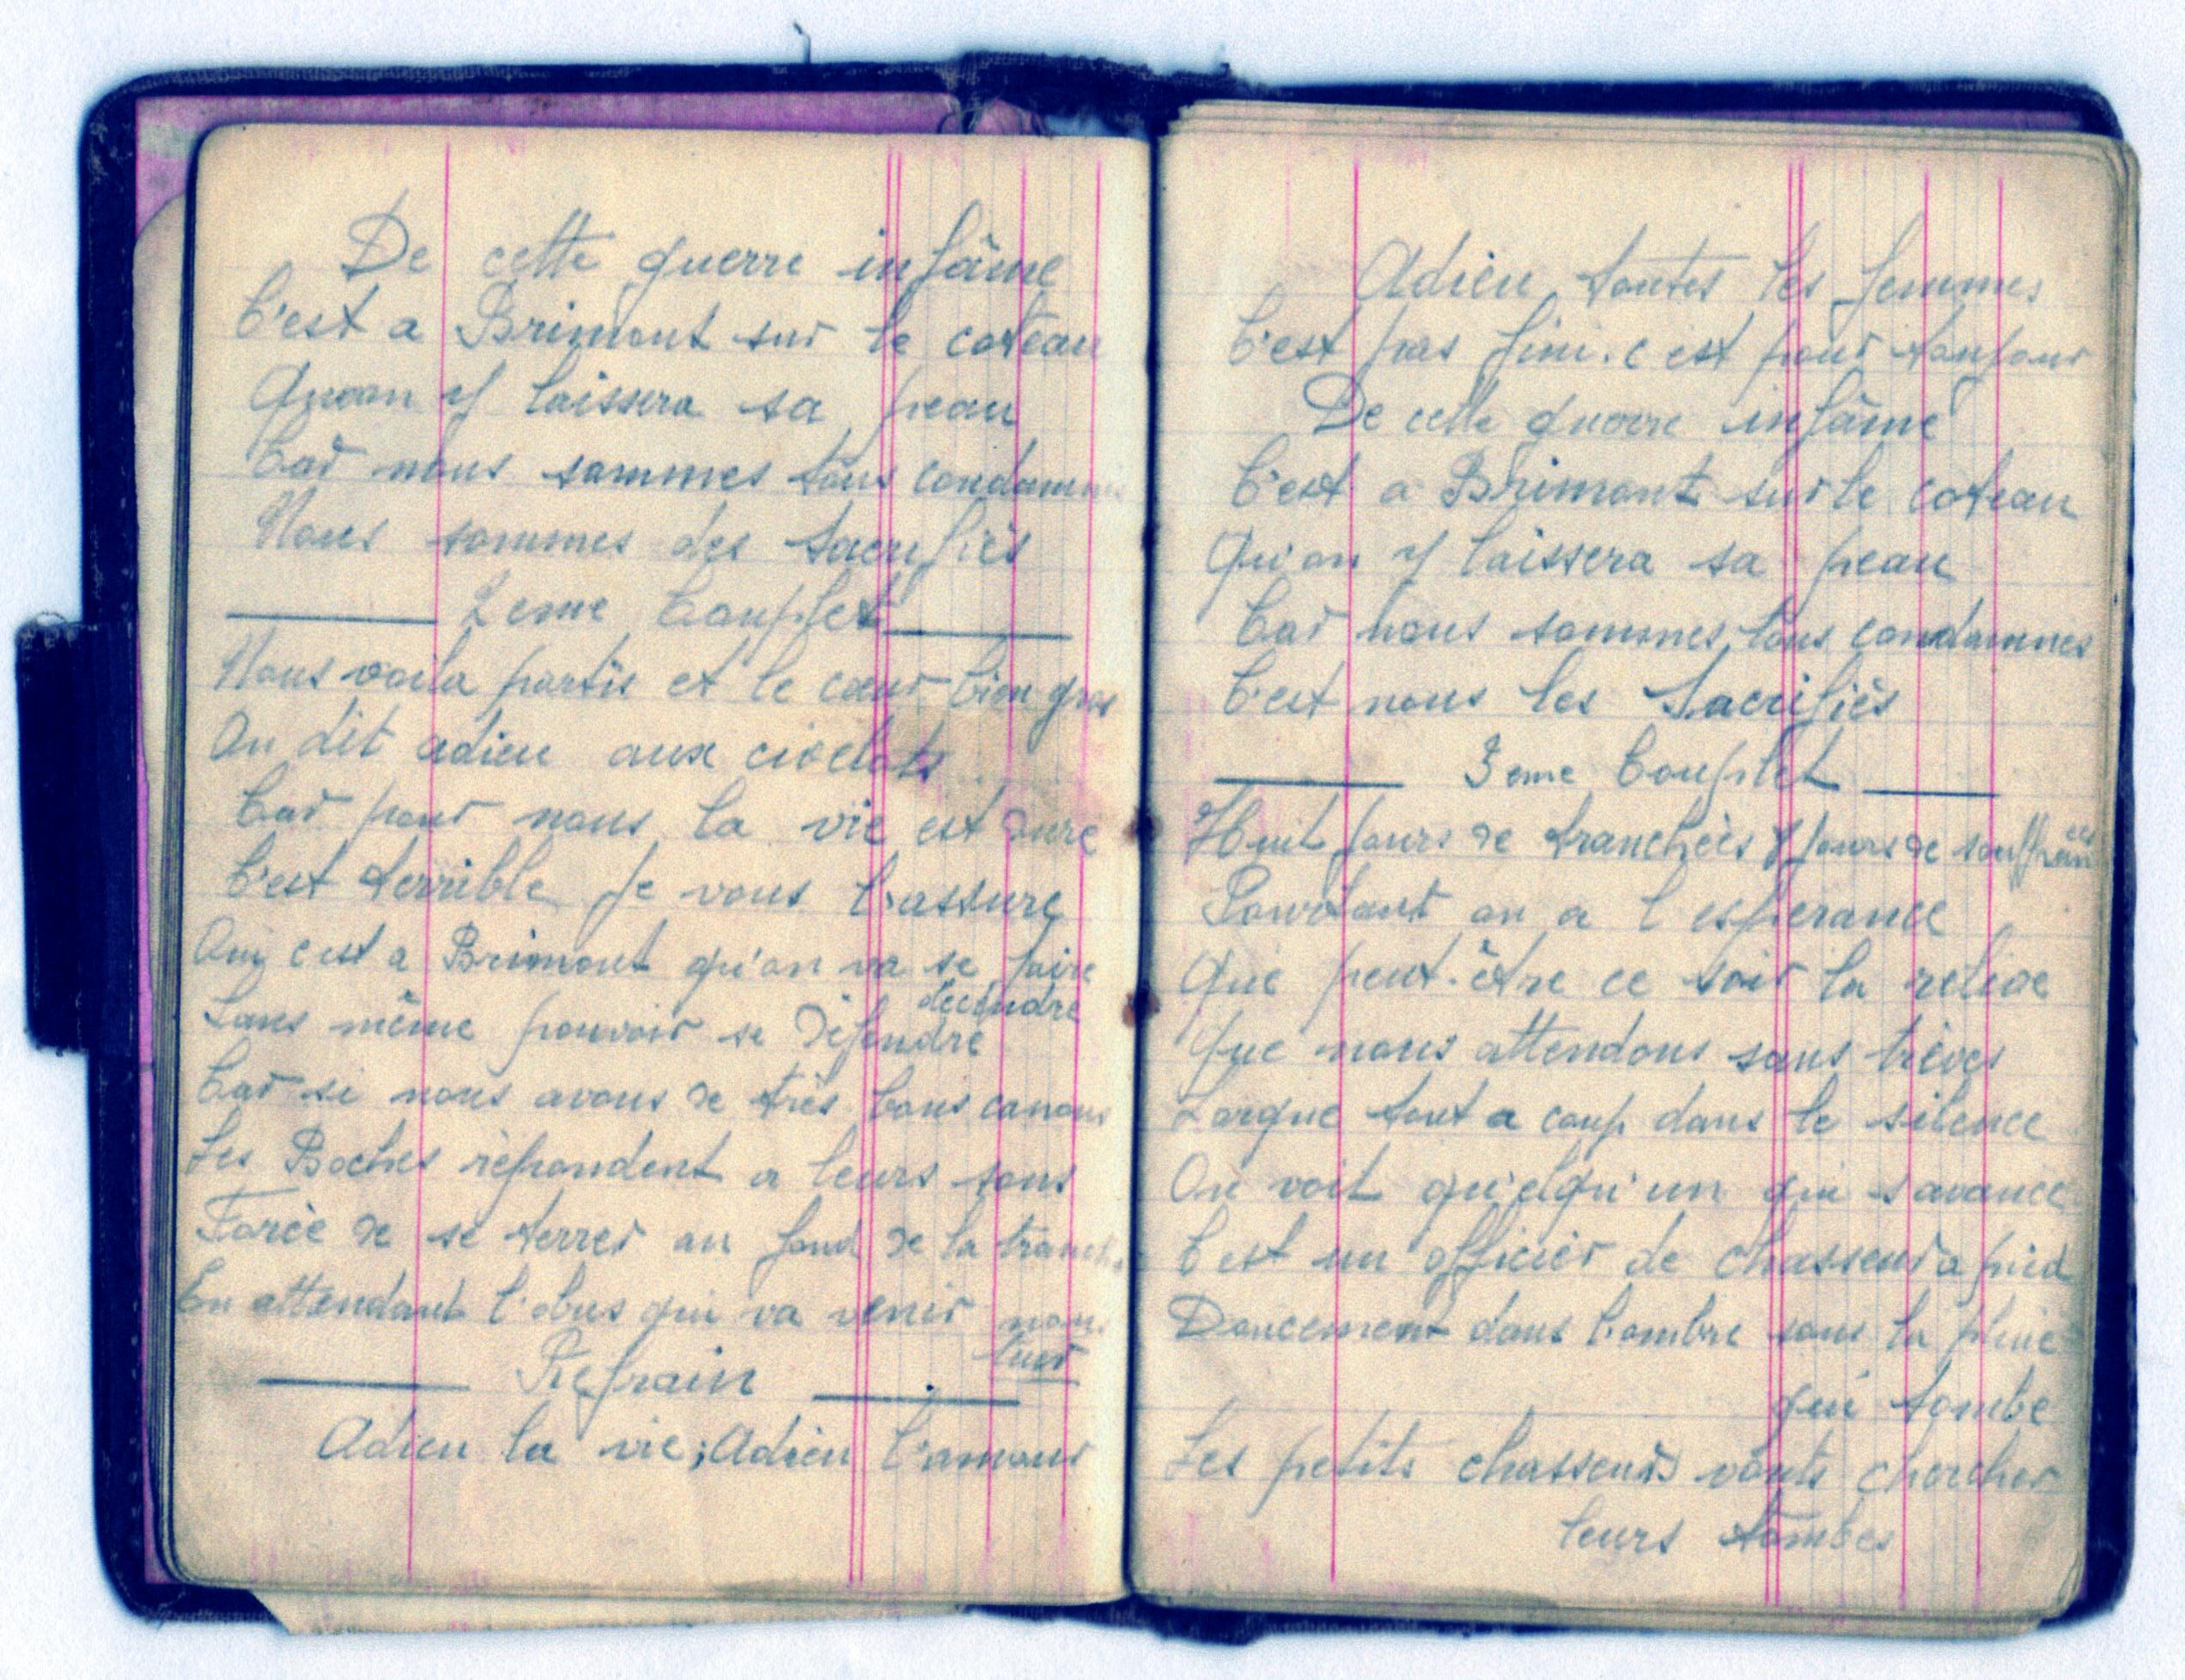 De cette guerre infâme
C'est a Brimont sur le coteau
Quoan y laissera sa peau
Car nous sommes tous condamnés
Nous sommes des sacrifiès
2eme Couplet
Nous voila partis et le cœur bien gros
On dit adieu aux civelots
Car pour nous la vie est dure
C'est terrible je vous l'assure
Oui c'est a Brimont qu'on va se faire
decendre
Sans même pouvoir se dèfendre
Car si nous avons de très bons canons
Les Boches rèpondent a leurs sons
Forcè de se terrer au fond de la tranchée
En attendant l'obus qui va venir nous
tuer
Refrain
Adieu la vie; Adieu l'amour
Adieu toutes les femmes
C'est pas fini. c est pour toujour
De cette guerre infâme
C'est a Brimont sur le coteau
Qu'on y laissera sa peau
Car nous sommes tous condamnes
C'est nous les sacrifiès
3eme Couplet
Huit jours de tranchèes 8 jours de souffrances
Pourtant on a l'esperance
Que peut-être ce soir la relive
Que nous attendons sans trèves
Lorque tout a coup dans le silence
On voit qu'elqu'un qui s'avance
C'est un officier de chasseur a pied
Doucement dans l'ombre sous la pluie
qui tombe
Les petits chasseurs vonts chercher
leurs tombes